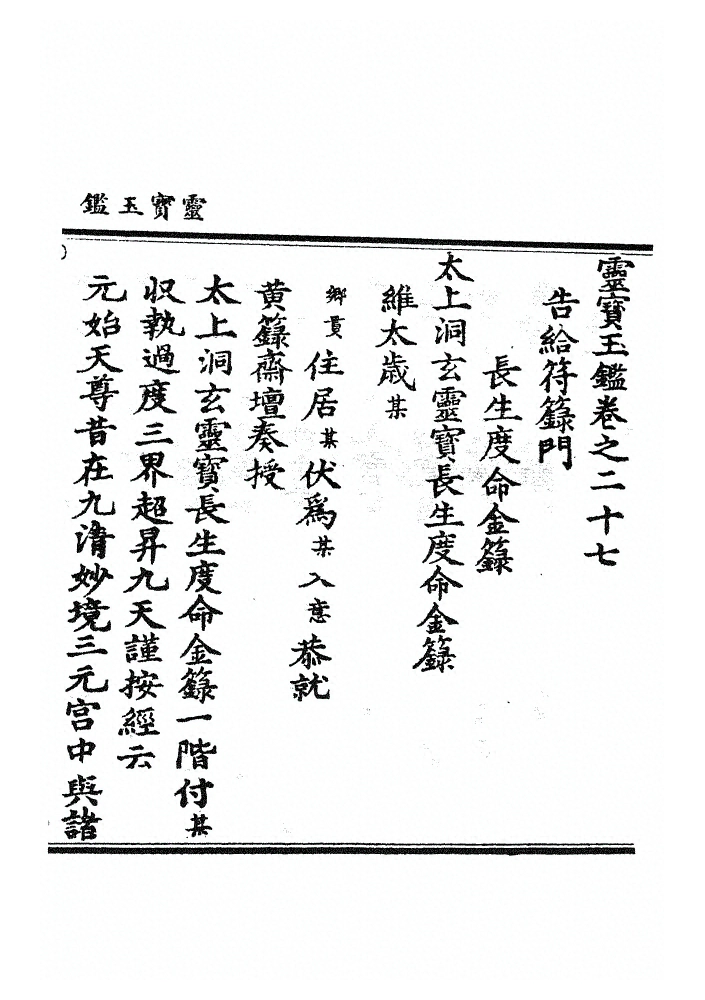 靈寶玉鑑
靈寶玉鑑卷之二十七
告給符籙門
長生度命金籙
太上洞玄靈寶長生度命金籙
維太歲某
鄉貫住居某伏爲某入意恭就
黃籙齋壇奏授
太上洞玄靈寶長生度命金籙一階付某
收執過度三界超昇九天謹按經云
元始天尊昔在九清妙境三元宮中與諸